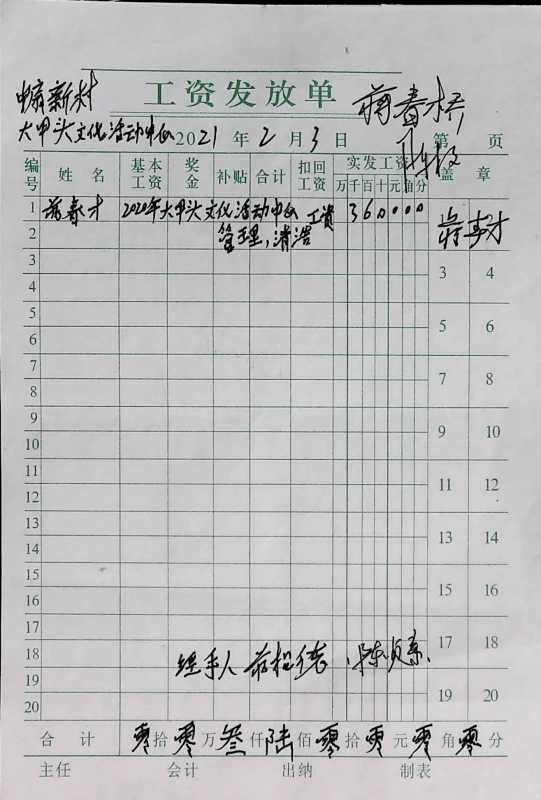 工资发放单
蒋春桥
新村
大甲头文化活动中心 2021 年 2 月 3 日 第 页
编号 姓名 基本工资 奖金 补贴 合计 扣回工资 实发工资 盖章
万 千 百 十 元 角 分
1 蒋春才 2020年大甲头文化活动中心 工资 3 6 0 0 0 0
2 管理,清浩
3 3 4
4
5 5 6
6
7 7 8
8
9 9 10
10
11 11 12
12
13 13 14
14
15 15 16
16
17 17 18
18 经手人
19 19 20
20
合计 零拾零万叁仟陆佰零拾零元零角零分
主任 会计 出纳 制表